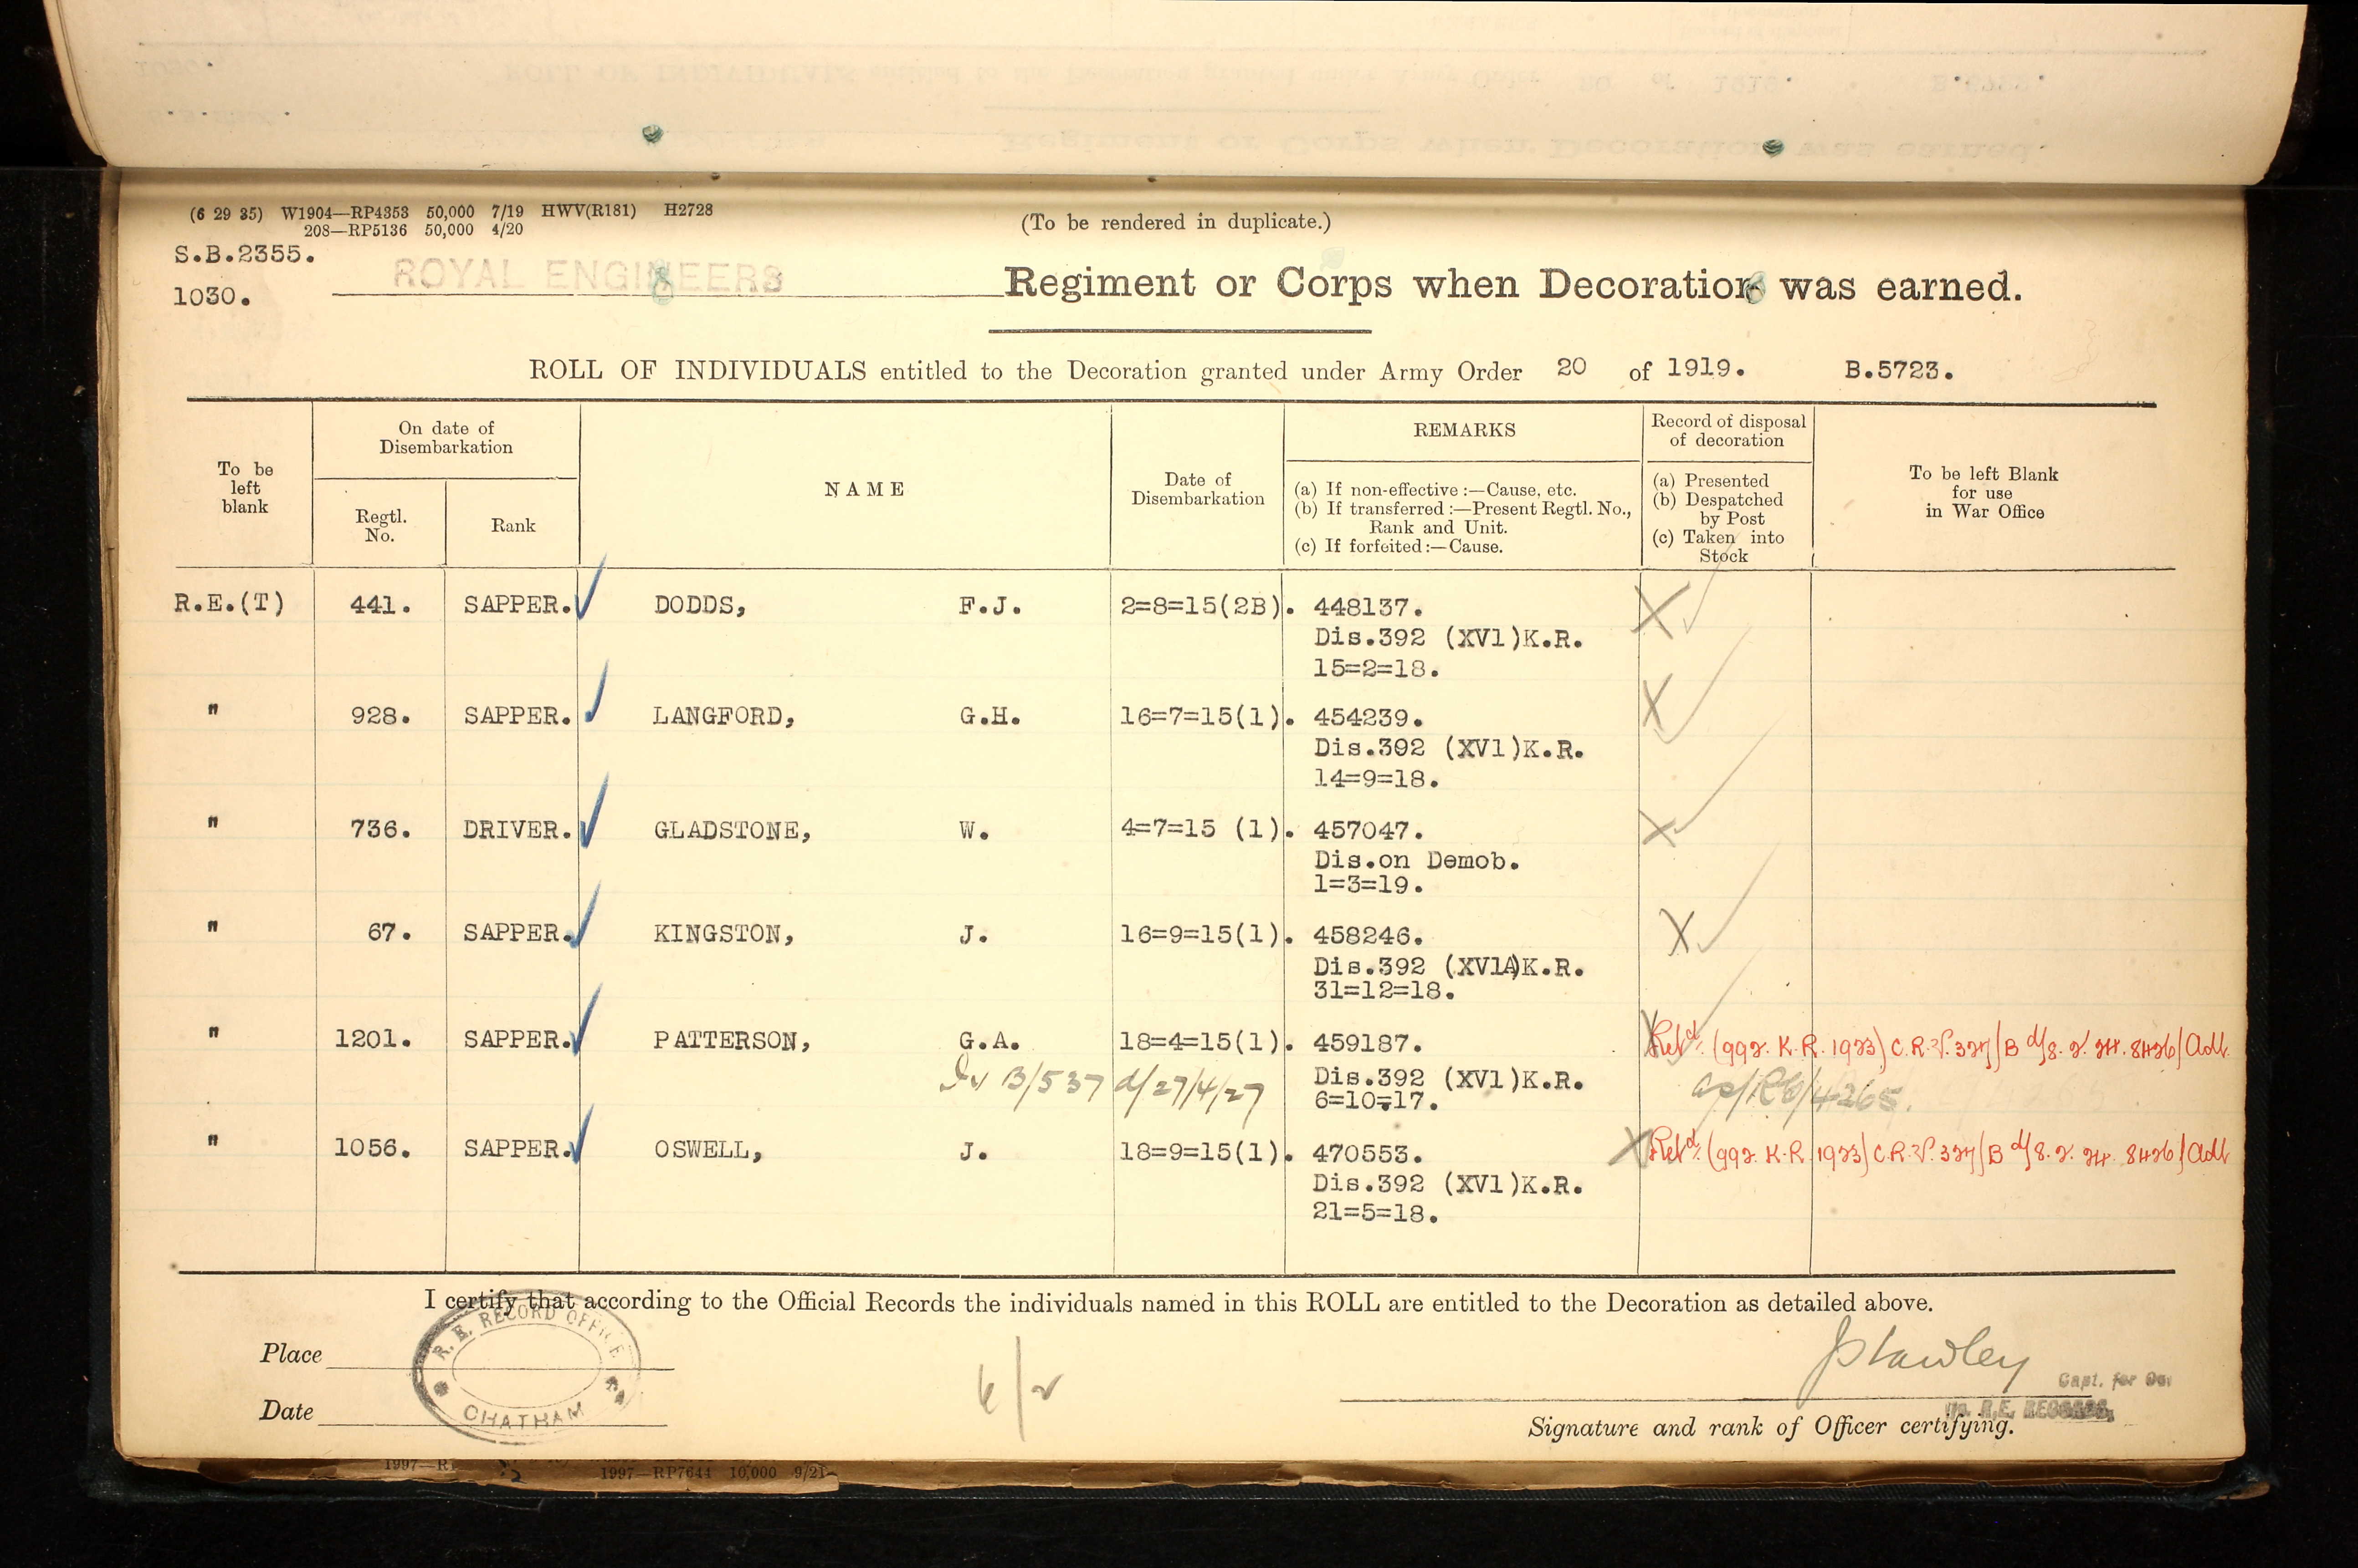 (6 29 35) W1904—RP4353 50,000 7/19 HWV(R181) H2728
208—RP5136 50,000 4/20
(To be rendered in duplicate.)
S.B.2355.
1030.
ROYAL ENGINEERS
Regiment or Corps when Decoration was earned.
ROLL OF INDIVIDUALS entitled to the Decoration granted under Army Order 20 of 1919. B.5723.
To be left blank
On date of Disembarkation
Regtl. No.
Rank
NAME
Date of Disembarkation
REMARKS
(a) If non-effective :—Cause, etc.
(b) If transferred :—Present Regtl. No., Rank and Unit.
(c) If forfeited :—Cause.
Record of disposal of decoration
(a) Presented
(b) Despatched by Post
(c) Taken into Stock
To be left Blank for use in War Office
R.E.(T) 441. SAPPER. DODDS, F.J. 2=8=15(2B). 448137.
Dis.392 (XVl)K.R.
15=2=18.
" 928. SAPPER. LANGFORD, G.H. 16=7=15(1). 454239.
Dis.392 (XVl)K.R.
14=9=18.
" 736. DRIVER. GLADSTONE, W. 4=7=15 (1). 457047.
Dis.on Demob.
1=3=19.
" 67. SAPPER. KINGSTON, J. 16=9=15(1). 458246.
Dis.392 (XVlA)K.R.
31=12=18.
" 1201. SAPPER. PATTERSON, G.A. 18=4=15(1). 459187. Retd. (992. K.R. 1923) C.R.V. 327/B d/8. 2. 24. 8426/Adt.
B/537 d/27/4/27 Dis.392 (XVl)K.R.
6=10=17.
" 1056. SAPPER. OSWELL, J. 18=9=15(1). 470553. Retd. (992. K.R. 1923) C.R.V. 327/B d/8. 2. 24. 8426/Adt
Dis.392 (XVl)K.R.
21=5=18.
I certify that according to the Official Records the individuals named in this ROLL are entitled to the Decoration as detailed above.
R.E. RECORD OFFICE
CHATHAM
Place
Date
Capt. for
R.E. RECORDS.
Signature and rank of Officer certifying.
1997—RP7644 10,000 9/21